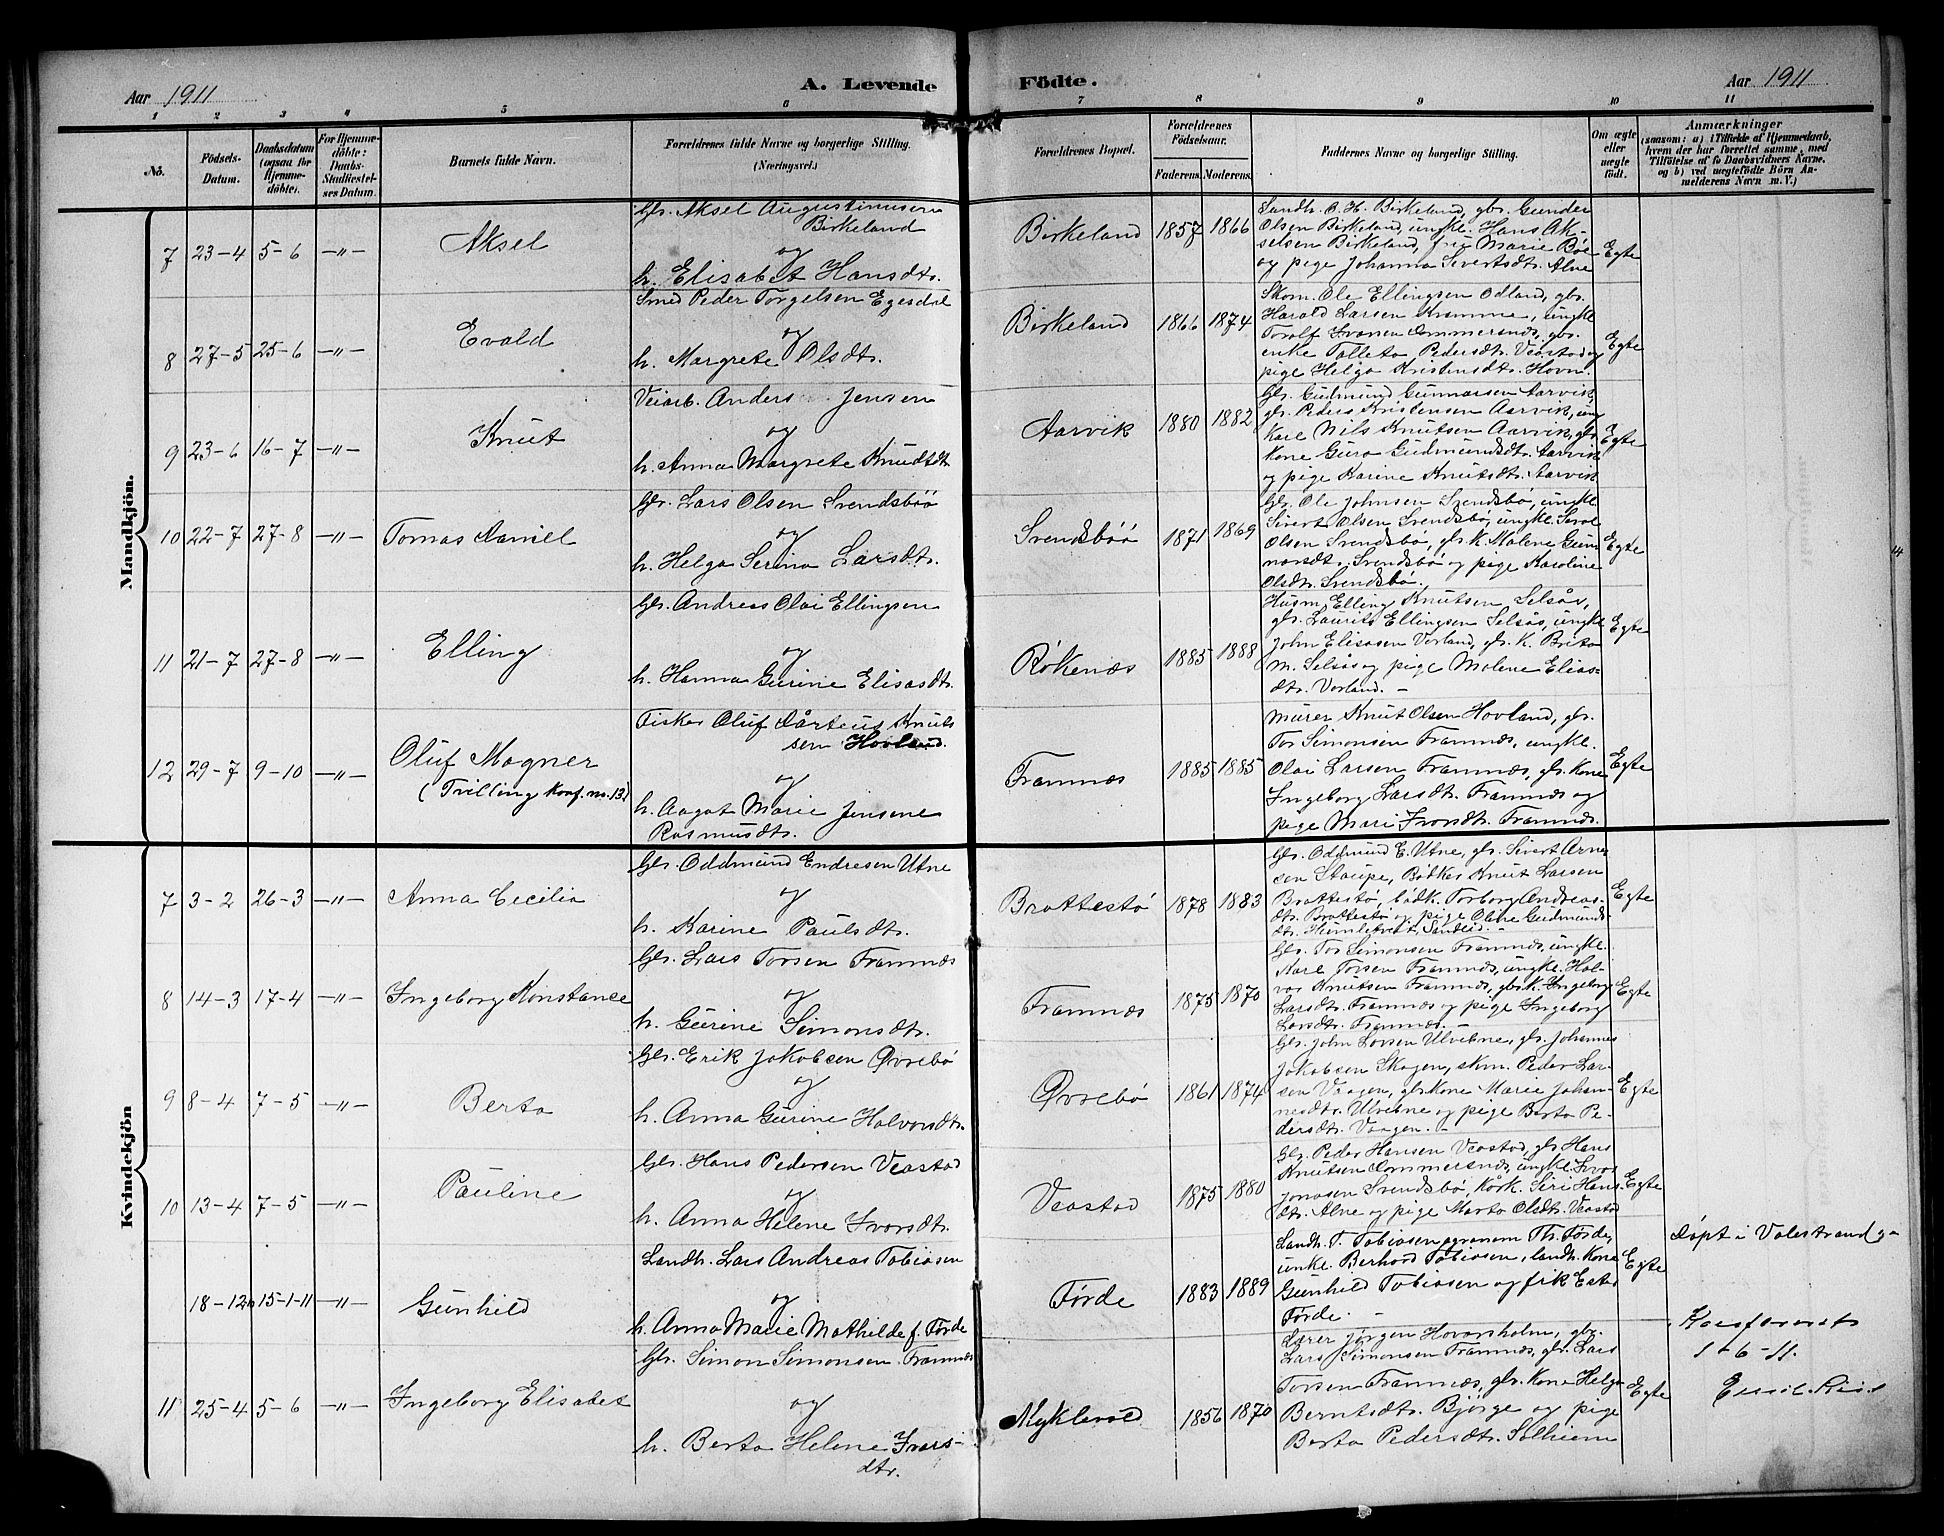 Aar 1911
A. Levende
Födte.
Aar 1911
1 2 3 4 5 6 7 8 9 10 11
No.
Födsels-
Datum.
Daabsdatum
(ogsaa for
Hjemme-
döbte).
For Hjemme-
döbte:
Daabs-
Stadfæstel-
ses Datum.
Barnets fulde Navn.
Forældrenes fulde Navne og borgerlige Stilling.
(Næringsvei.)
Forældrenes Bopæl.
Forældrenes
Födselsaar.
Faderens. Moderens.
Faddernes Navne og borgerlige Stilling.
Om ægte
eller
uægte
födt.
Anmærkninger
(saasom: a) i Tilfælde af Hjemmedaab,
hvem der har forrettet samme, med
Tilföielse af to Daabsvidners Navne,
og b) ved uægtefödte Börn An-
melderens Navn m. V.)
Mandkjön.
7 23-4 5-6 -"- Aksel
Gbr. Aksel Augustinusen
Birkeland
og
h. Elisabet Hansdtr.
Birkeland 1857 1866
Landh. O. H. Birkeland, gbr. Gunder
Olsen Birkeland, ungk. Hans Ak-
selsen Birkeland, fru Marie Bøe
og pige Johanna Sivertsdtr. Alne
Egte
8 27-5 25-6 -"- Evald
Smed Peder Torgelsen Egesdal
og
h. Margrete Olsdtr.
Birkeland 1866 1874
Skom. Ole Ellingsen Odland, gbr.
Harald Larsen Kramme, ungk.
Torolf Ivarsen Ommersnes, gbr.
enke Tolleta Pedersdtr. Veastad og
pige Helga Kristensdtr. Hovn.
Egte
9 23-6 16-7 -"- Knut
Veiarb. Anders Jensen
og
h. Anna Margrete Knudtdtr.
Aarvik 1880 1882
Gbr. Gudmund Gunnarsen Aarvik,
gbr. Peder Kristensen Aarvik, ung
karl Nils Knutsen Aarvik, gbr.
kone Guro Gudmundsdtr. Aarvik
og pige Karine Knutsdtr. Aarvik
Egte
10 22-7 27-8 -"- Tomas Daniel
Gbr. Lars Olsen Svendsbøø
og
h. Helga Serina Larsdtr.
Svendsbøø 1871 1869
Gbr. Ole Johnsen Svendsbø, ungk.
Sivert Olsen Svendsbø, ungk.
Olsen Svendsbø, gbr. k. Malene Gun
narsdtr. Svendsbø og pige Karoline
Olsdtr. Svendsbø.
Egte
11 21-7 27-8 -"- Elling
Gbr. Andreas Olai Ellingsen
og
h. Hanna Gurine Eliasdtr.
Røkenæs 1885 1888
Husm. Elling Knutsen Selsås,
gbr. Laurits Ellingsen Selsås, ungk.
John Eliasen Vorland, gbr. K. Brita
M. Selsås og pige Malene Elias-
dtr. Vorland. -
Egte
12 29-7 9-10 -"- Oluf Magner
(Tvilling konf. no. 13)
Fisker Oluf Dårteus Knuts
sen Hovland.
og
h. Aagot Marie Jensine
Rasmusdtr.
Framnæs 1885 1885
Murer Knut Olsen Hovland, gbr.
Tor Simonsen Framnæs, ungk.
Olai Larsen Framnæs, gbr. kone
Ingeborg Larsdtr. Framnæs og
pige Mari Ivarsdtr. Framnæs.
Egte
Kvindekjön
7 3-2 26-3 -"- Anna Cecilia
Gbr. Oddmund Endresen Utne
og
h. Karine Paulsdtr.
Brattestø 1878 1883
Gbr. Oddmund E. Utne, gbr. Sivert Arne
sen Staupe, Bødker Knut Larsen
Brattestø, bødk. Torborg Andreas-
dtr. Brattestø og pige Oline Gudmunds-
dtr. Sandeid. -
Egte
8 14-3 17-4 -"- Ingeborg Konstanse
Gbr. Lars Torsen Framnæs
og
h. Gurine Simonsdtr.
Framnæs 1875 1870
Gbr. Tor Simonsen Framnæs, ungk.
Karl Torsen Framnæs, ungk. Hal-
vor Knutsen Framnæs, gbr. k. Ingeborg
Larsdtr. Framnæs og pige Ingeborg
Larsdtr. Framnæs. -
Egte
9 8-4 7-5 -"- Berta
Gbr. Erik Jakobsen Øvrebø
og
h. Anna Gurine Halvorsdtr.
Øvrebø 1861 1874
Gbr. John Larsen Ulvebne, gbr. Johannes
Jakobsen Skogen, skm. Peder Lar-
sen Vaagen, gbr. kone Marie Johan-
nesdtr. Ulvebne og pige Berta Pe-
dersdtr. Vaagen. -
Egte
10 13-4 7-5 -"- Pauline
Gbr. Hans Pedersen Veastad
og
h. Anna Helene Ivarsdtr.
Veastad 1875 1880
Gbr. Peder Hansen Veastad, gbr. Hans
Knutsen Ommersnes, ungk. Ivar
Jonasen Svendsbø, Siri Hans-
dtr. Alne og pige Marta Olsdtr. Veastad
Egte
18-12 15-1-11 -"- Gunhild
Landh. Lars Andreas Tobiasen
og
h. Anna Marie Mathilde f. Førde
Førde 1883 1889
Landh. T. Tobiasen agronom Th. Førde,
unke. Berhard Tobiasen, landh. Kone
Gunhild Tobiasen og frk Ester
Førde. -
Egte
Døpt i Valestrand
1-6-11.
11 25-4 5-6 -"- Ingeborg Elisabet
Gbr. Simon Simonsen Framnæs
og
h. Berta Helene Ivars-
dtr.
Myklevold 1856 1870
Lærer Jørgen Hovarsholm, gbr.
Lars Simonsen Framnæs, gbr. Lars
Torsen Framnæs, gbr. kone Helga
Berntsdtr. Bjørge og pige
Berta Pedersdtr. Solheim
Egte
14